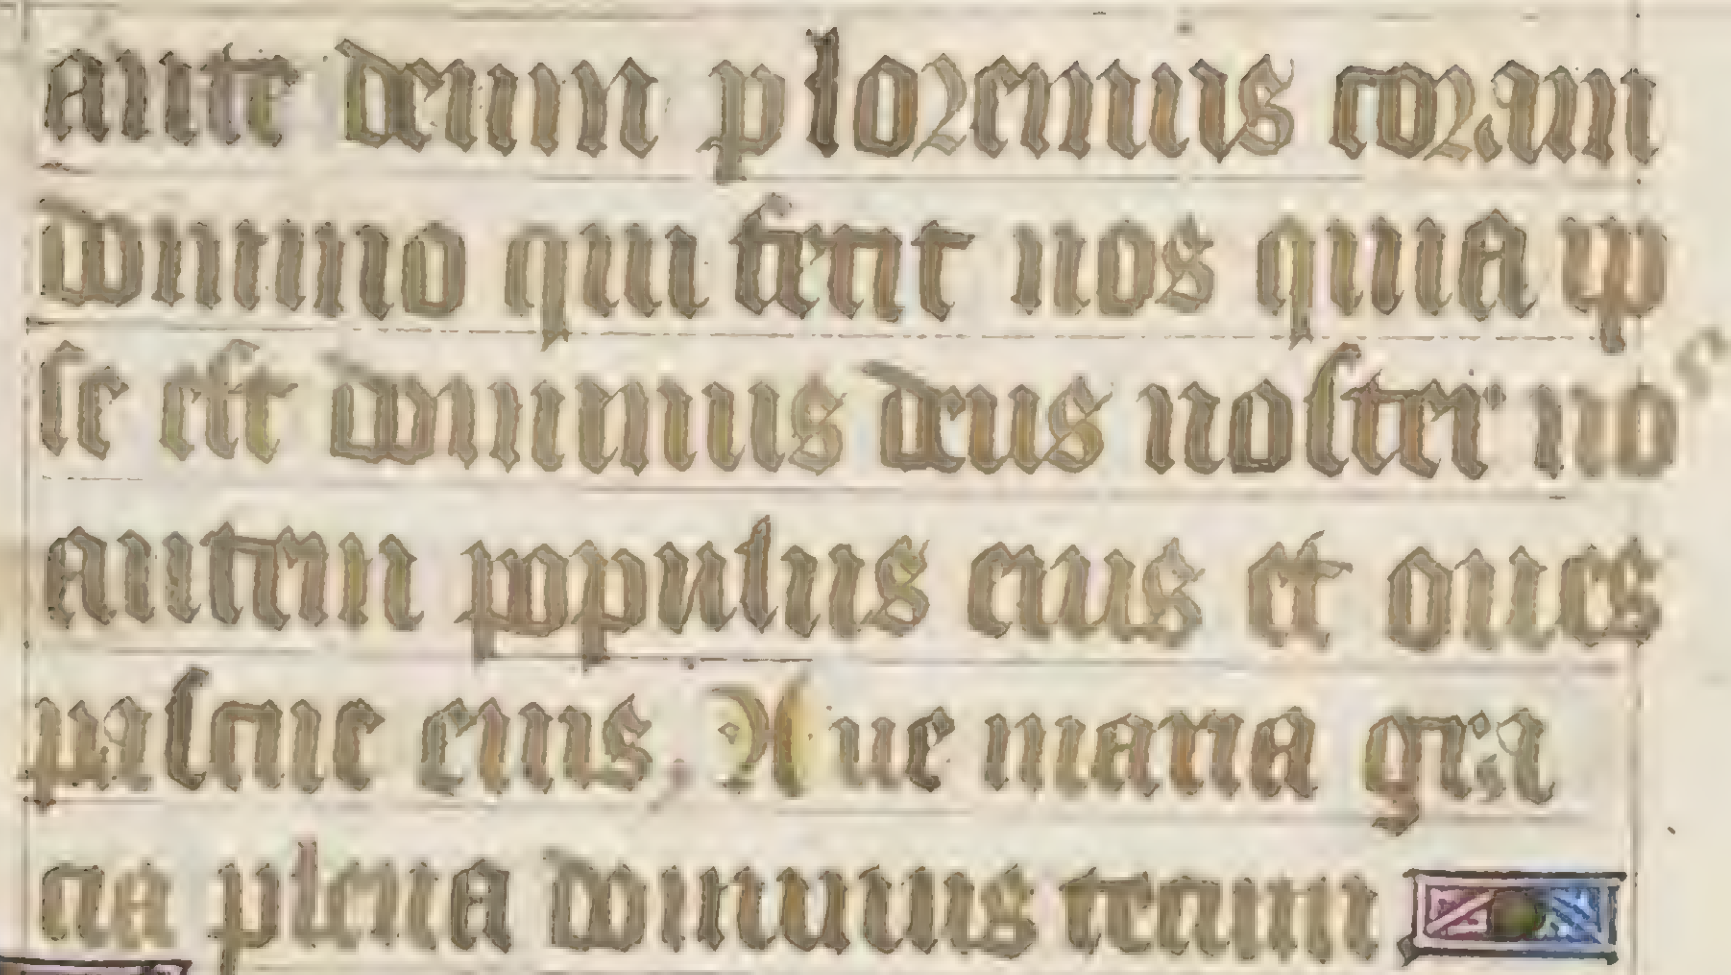 ante deum ploremus coram
domino qui fecit nos quia ip
se est dominus deus noster nos
autem populus eius et oues
pascue eius, Aue maria gra
cia plena dominus tecum